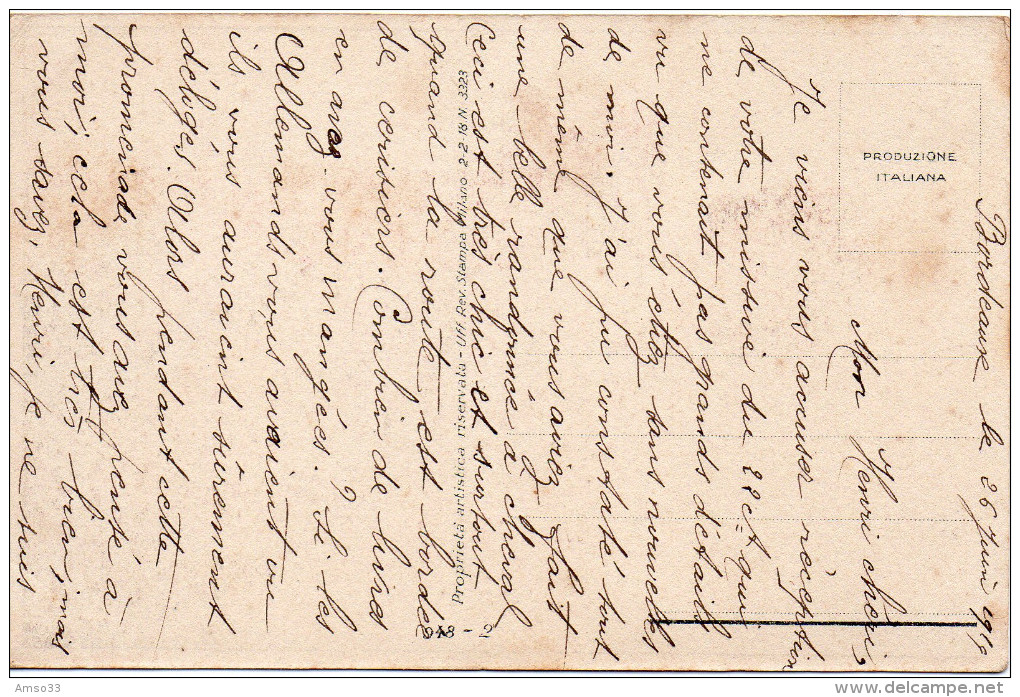 Bordeaux le 26 Juin 1919
Mon Henri chéri,
Je viens vous accuser réception
de votre missive du 22 ct qui
ne contenait pas grands détails
vu que vous étiez sans nouvelles
de moi. J'ai pu constaté tout
de même que vous aviez fait
une belle randonnée à cheval
Ceci est très chic et surtout
quand la route est bordée
de cerisiers. Combien de livres
en avez-vous mangés? Si les
Allemands vous avaient vu
ils vous auraient sûrement
délogés. Alors pendant cette
promenade vous avez pensé à
moi, cela est très bien, mais
vous savez, Henri, je ne suis
PRODUZIONE
ITALIANA
Proprietà artistica riservata - Uff. Rev. Stampa Milano 2-2-18. N. 3323
948 - 2
Amso33
www.delcampe.net